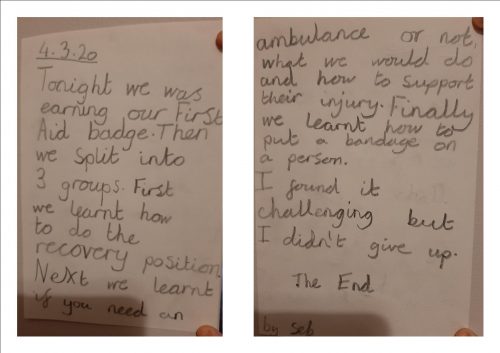 4.3.20
Tonight we was
earning our First
Aid badge. Then
we split into
3 groups. First
we learnt how
to do the
recovery position.
Next we learnt
if you need an
ambulance or not,
what we would do
and how to support
their injury. Finally
we learnt how to
put a bandage on
a person.
I found it
challenging but
I didn't give up.
The End
by Seb